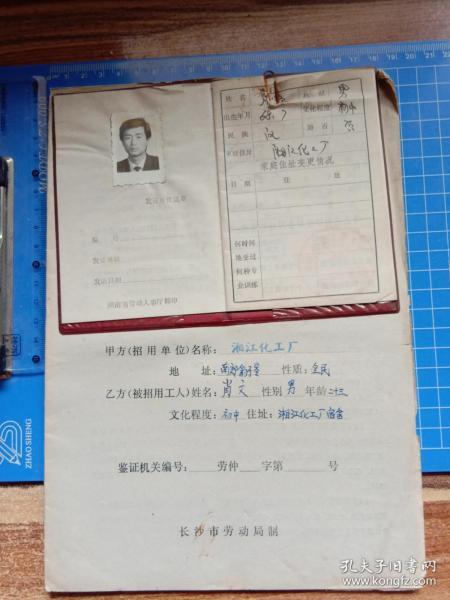 姓名
性别 男
出生年月
文化程度 初中
民族 汉
家庭住址 湘江化工厂
家庭住址变更情况
日期 住址
何时何
地受过
何种专
业训练
编号
发证单位
发证日期
湖南省劳动人事厅印
甲方(招用单位)名称: 湘江化工厂
地址: 性质: 全民
乙方(被招用工人)姓名: 肖文 性别 男 年龄 二十三
文化程度: 初中 住址: 湘江化工厂宿舍
鉴证机关编号: 劳仲 字第 号
长沙市劳动局制
ZHAO SHENG
孔夫子旧书网
www.kongfz.com